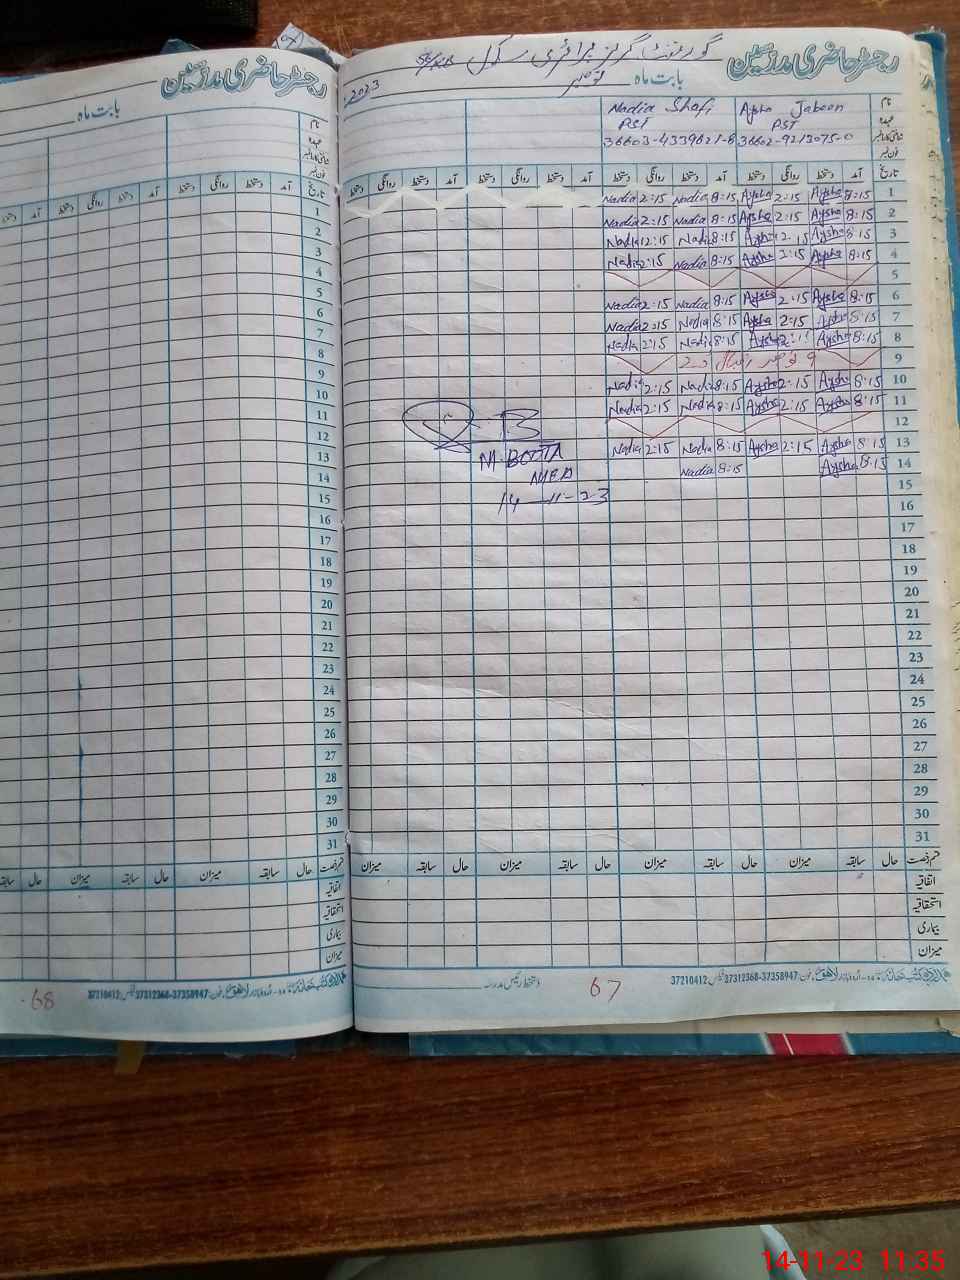 رجسٹر حاضری مدرسین
گورنمنٹ گرلز پرائمری سکول
بابت ماہ نومبر 2023
نام Aysha Jabeen Nadia Shafi
عہدہ PST PST
شناختی کارڈ نمبر 36602-9213075-0 36603-4339621-8
فون نمبر
تاریخ آمد دستخط روانگی دستخط آمد دستخط روانگی دستخط آمد دستخط روانگی دستخط آمد دستخط روانگی دستخط
1 8:15 Aysha 2:15 Aysha 8:15 Nadia 2:15 Nadia
2 8:15 Aysha 2:15 Aysha 8:15 Nadia 2:15 Nadia
3 8:15 Aysha 2:15 Aysha 8:15 Nadia 2:15 Nadia
4 8:15 Aysha 2:15 Aysha 8:15 Nadia 2:15 Nadia
5
6 8:15 Aysha 2:15 Aysha 8:15 Nadia 2:15 Nadia
7 8:15 Aysha 2:15 Aysha 8:15 Nadia 2:15 Nadia
8 8:15 Aysha 2:15 Aysha 8:15 Nadia 2:15 Nadia
9 9 نومبر اقبال ڈے
10 8:15 Aysha 2:15 Aysha 8:15 Nadia 2:15 Nadia
11 8:15 Aysha 2:15 Aysha 8:15 Nadia 2:15 Nadia
12
13 8:15 Aysha 2:15 Aysha 8:15 Nadia 2:15 Nadia
14 8:15 Aysha 8:15 Nadia
M. BOOTA
MEA
14-11-23
15
16
17
18
19
20
21
22
23
24
25
26
27
28
29
30
31
قسم رخصت حال سابقہ میزان حال سابقہ میزان حال سابقہ میزان حال سابقہ میزان
اتفاقیہ
استحقاقیہ
بیماری
میزان
اردو بازار لاہور فون: 37358947-37312368 فیکس: 37210412
دستخط رئیس مدرسہ
67
رجسٹر حاضری مدرسین
بابت ماہ
نام
عہدہ
شناختی کارڈ نمبر
فون نمبر
تاریخ آمد دستخط روانگی دستخط آمد دستخط روانگی دستخط آمد دستخط
1
2
3
4
5
6
7
8
9
10
11
12
13
14
15
16
17
18
19
20
21
22
23
24
25
26
27
28
29
30
31
قسم رخصت حال سابقہ میزان حال سابقہ میزان حال سابقہ
اتفاقیہ
استحقاقیہ
بیماری
میزان
اردو بازار لاہور فون: 37358947-37312368 فیکس: 37210412
68
14-11-23 11:35